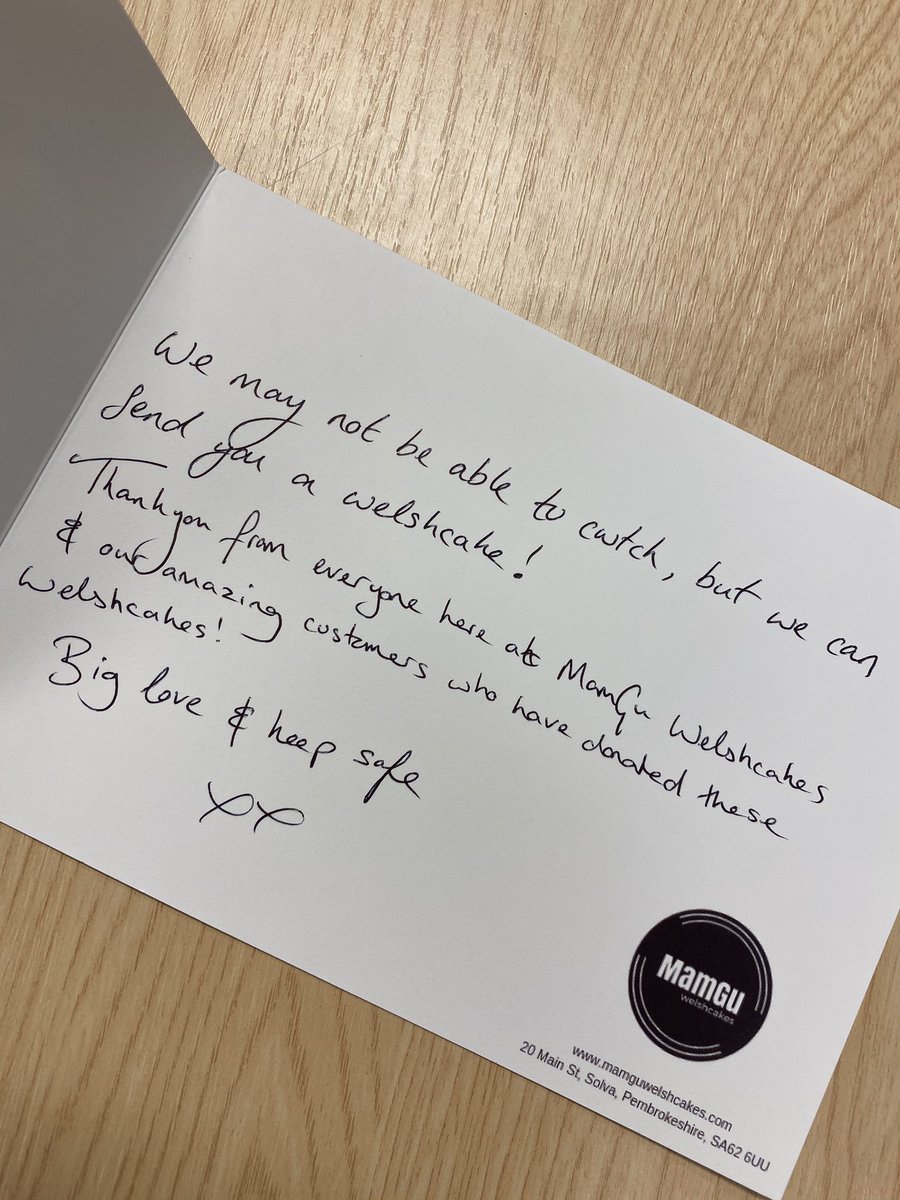 We may not be able to cwtch, but we can
send you a welshcake!
Thankyou from everyone here at MamGu Welshcakes
& our amazing customers who have donated these
Welshcakes!
Big love & keep safe
xx
MamGu
welshcakes
www.mamguwelshcakes.com
20 Main St, Solva, Pembrokeshire, SA62 6UU